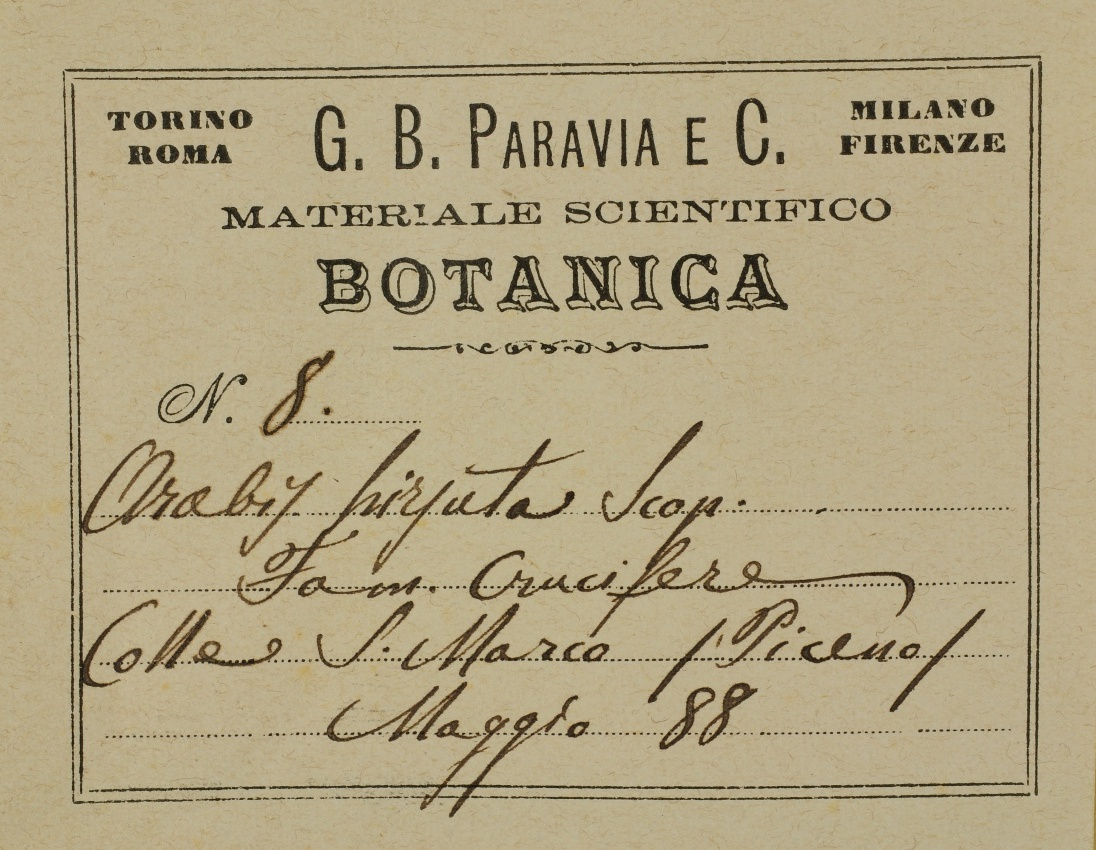 TORINO ROMA G. B. PARAVIA E C. MILANO FIRENZE
MATERIALE SCIENTIFICO
BOTANICA
N. 8.
Arabis hirsuta Scop.
Fam. Crucifere
Colle S. Marco /Piceno/
Maggio 88